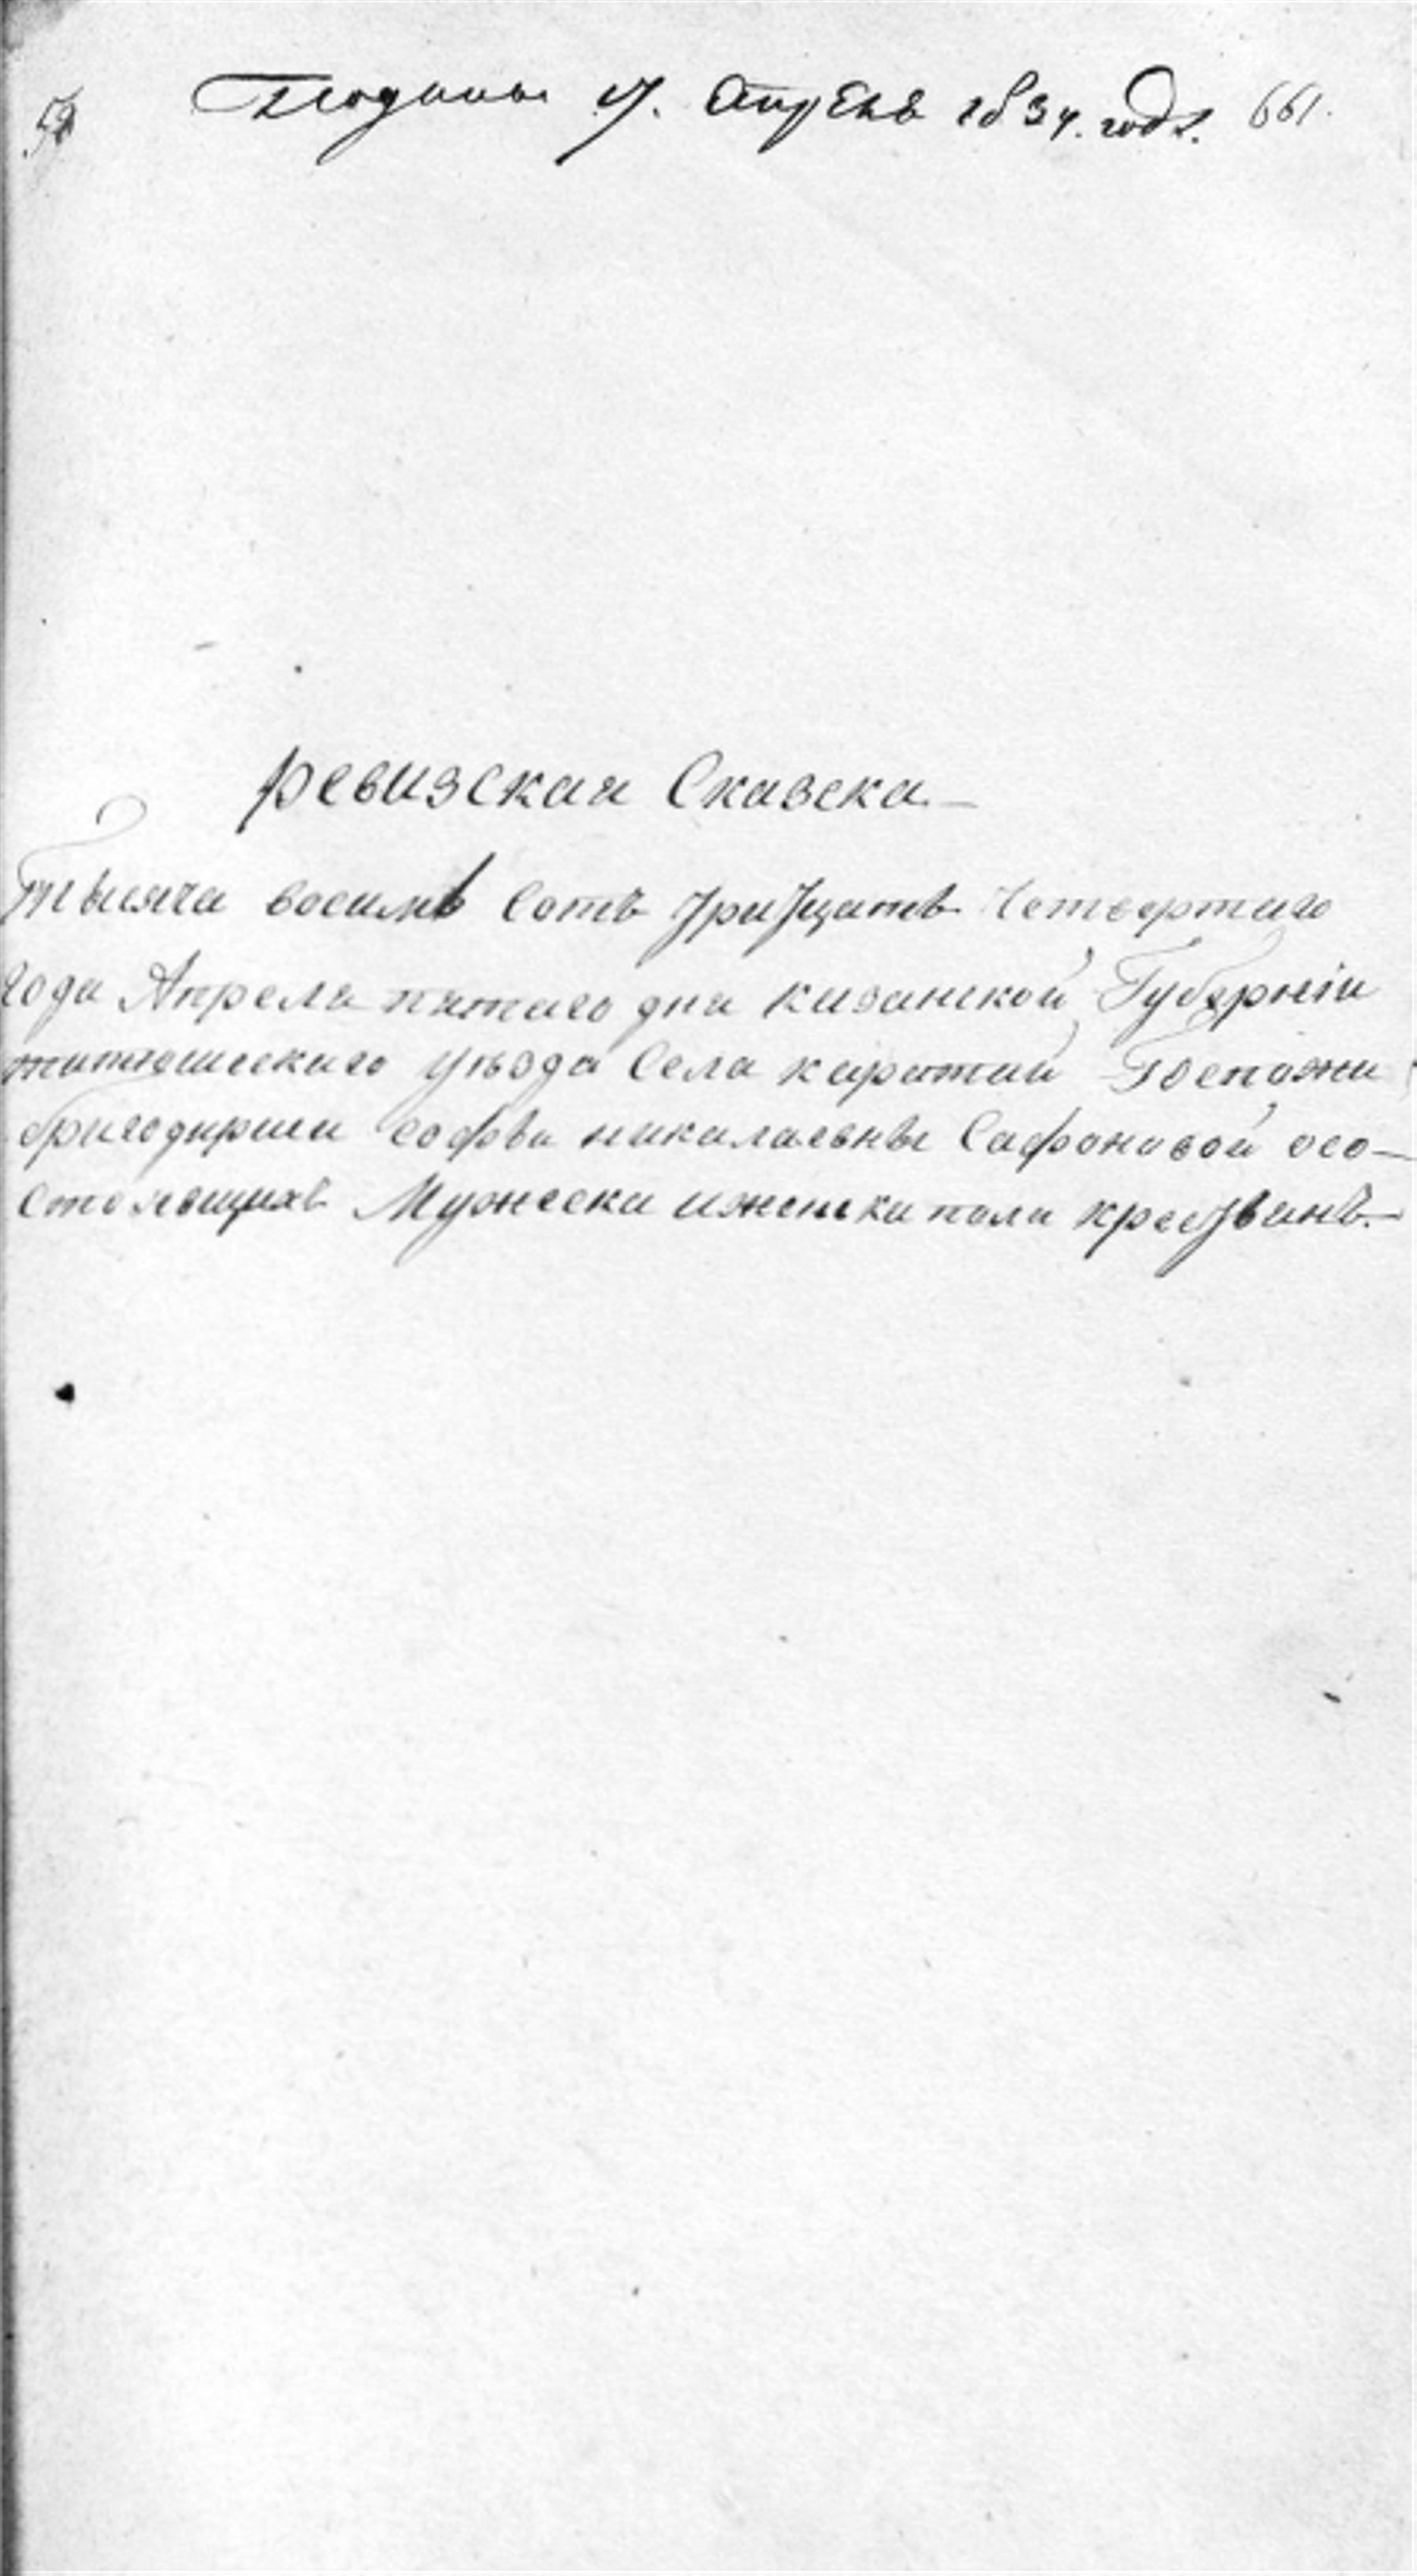 Подана 17. Апреля 1834. года. 661.
ревизская Сказска
тысяча восимь Сотъ тритцать Четвертаго
Года Апреля пятаго дня казанской Губерніи
тятюшескаго уъзда Села каратаи Госпожи
бригодирши софьи никалаевны Сафоновой осо-
стоящихъ Мужеска иженска пола крестьянъ.